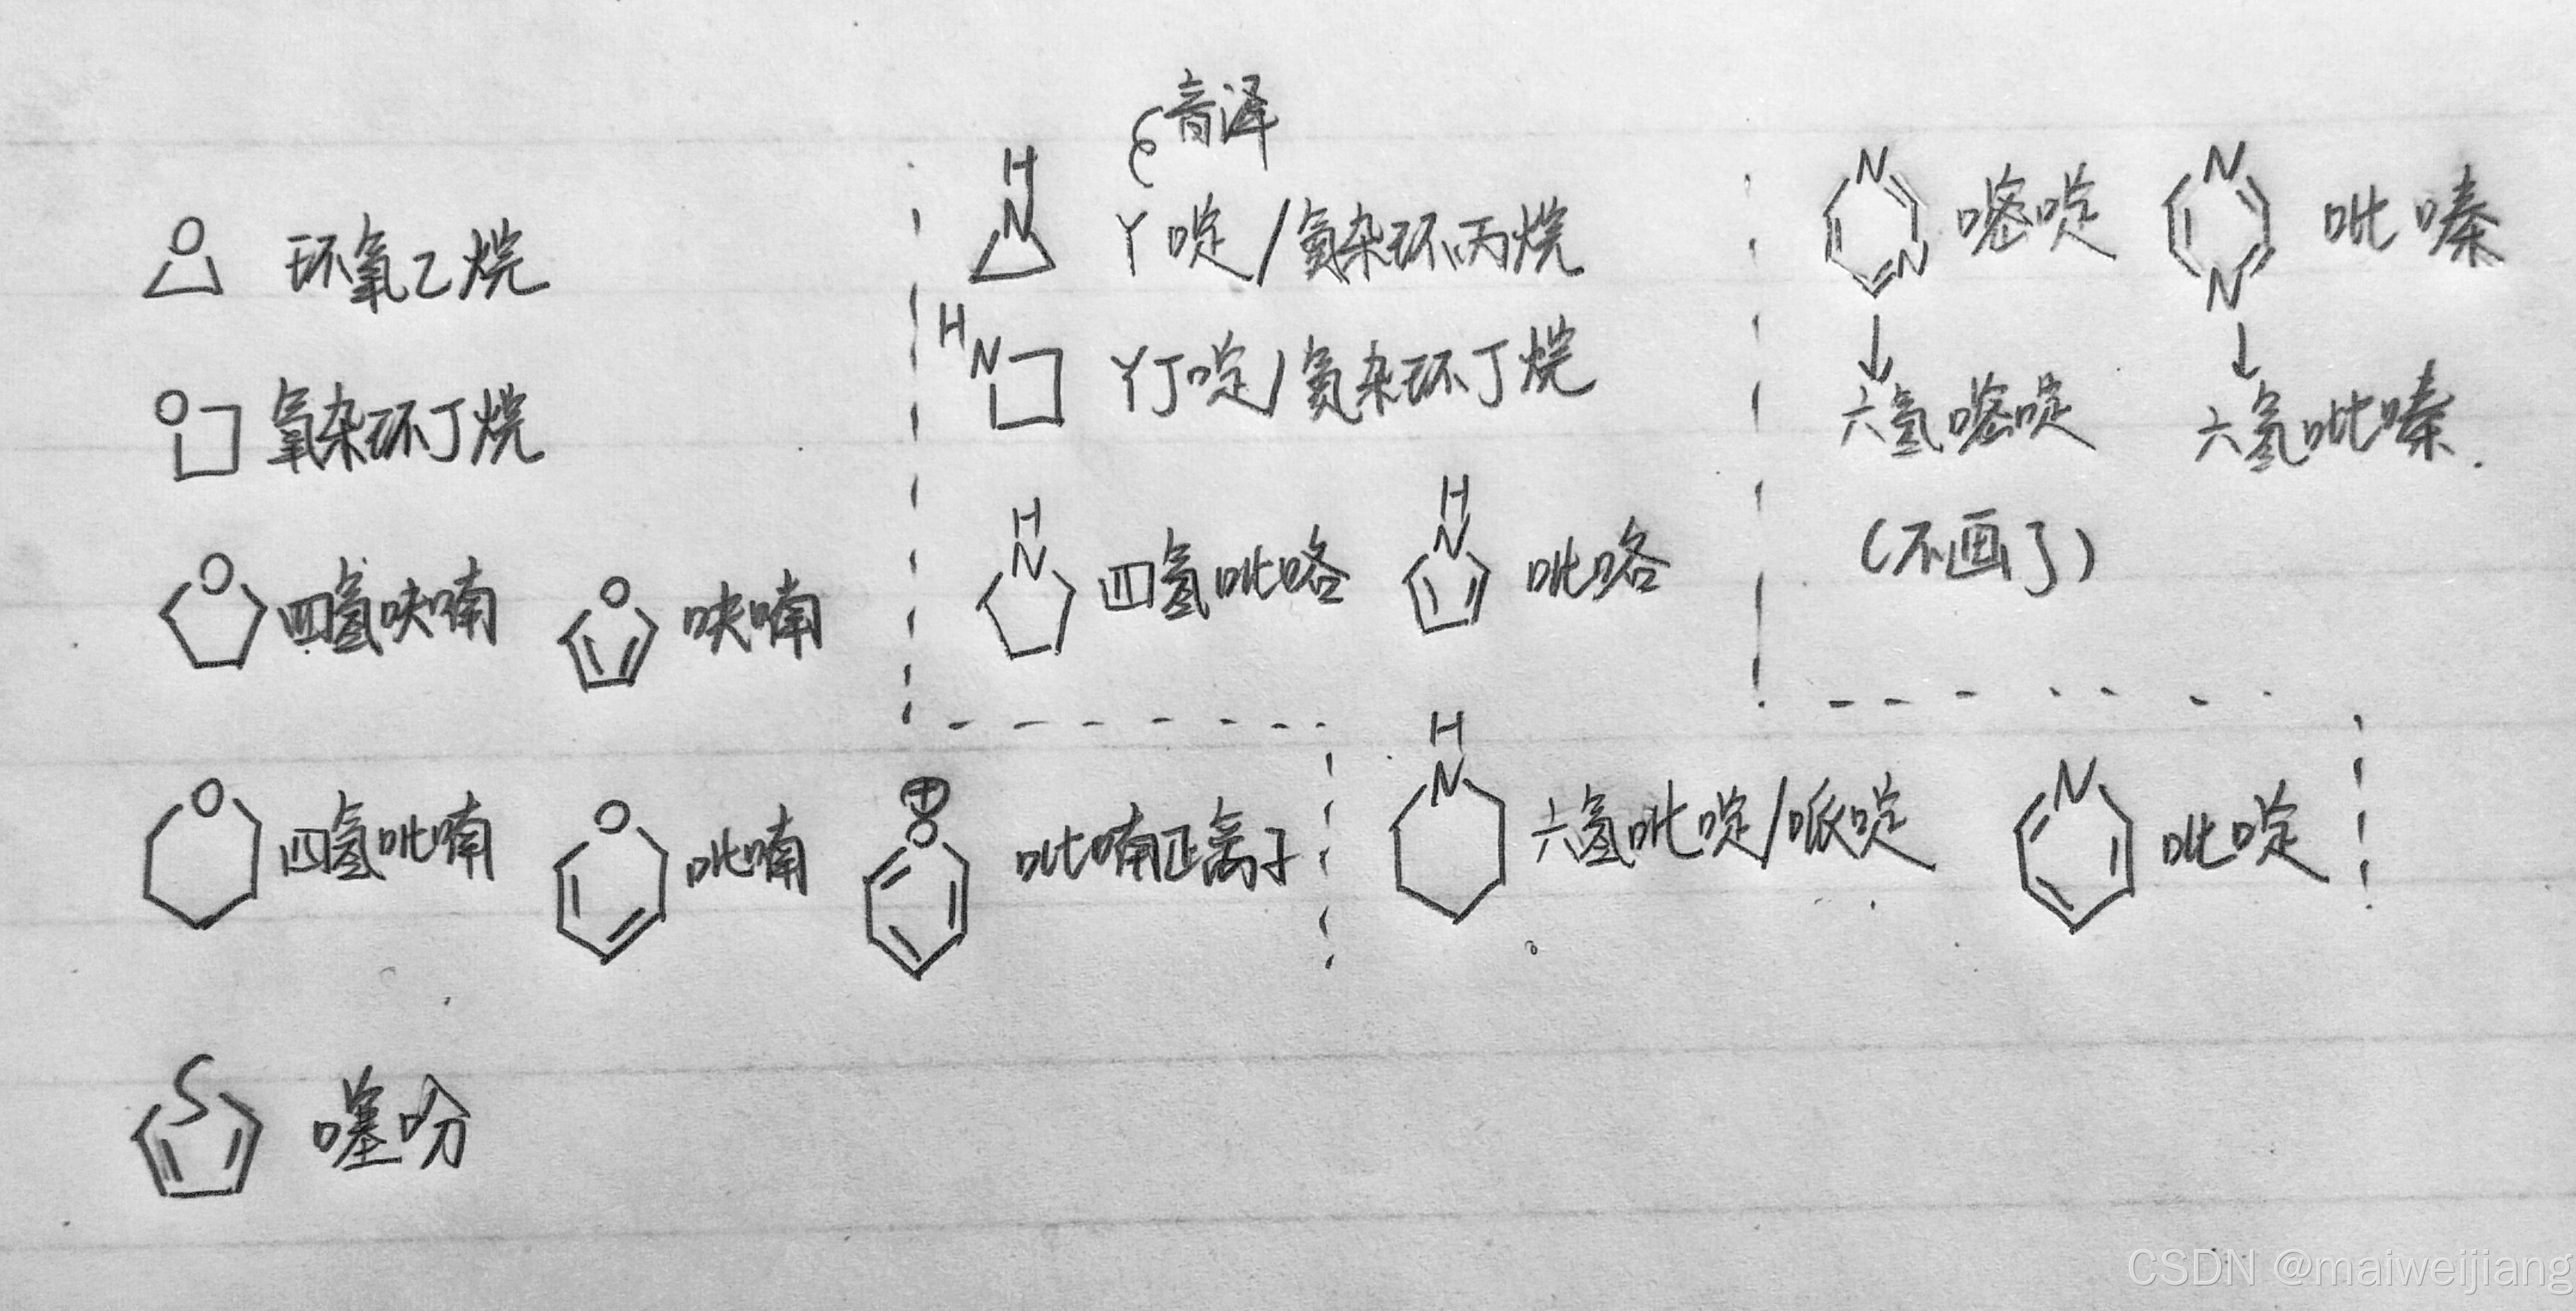 音译
O 环氧乙烷
H
N 丫啶/氮杂环丙烷
N N 嘧啶
N N 吡嗪
O 氧杂环丁烷
HN 丫丁啶/氮杂环丁烷
↓ ↓
六氢嘧啶 六氢吡嗪.
(不画了)
O 四氢呋喃 O 呋喃
H
N 四氢吡咯
H
N 吡咯
O 四氢吡喃 O 吡喃 ⊕
O 吡喃正离子
H
N 六氢吡啶/哌啶 N 吡啶
S 噻吩
CSDN @maiweijiang